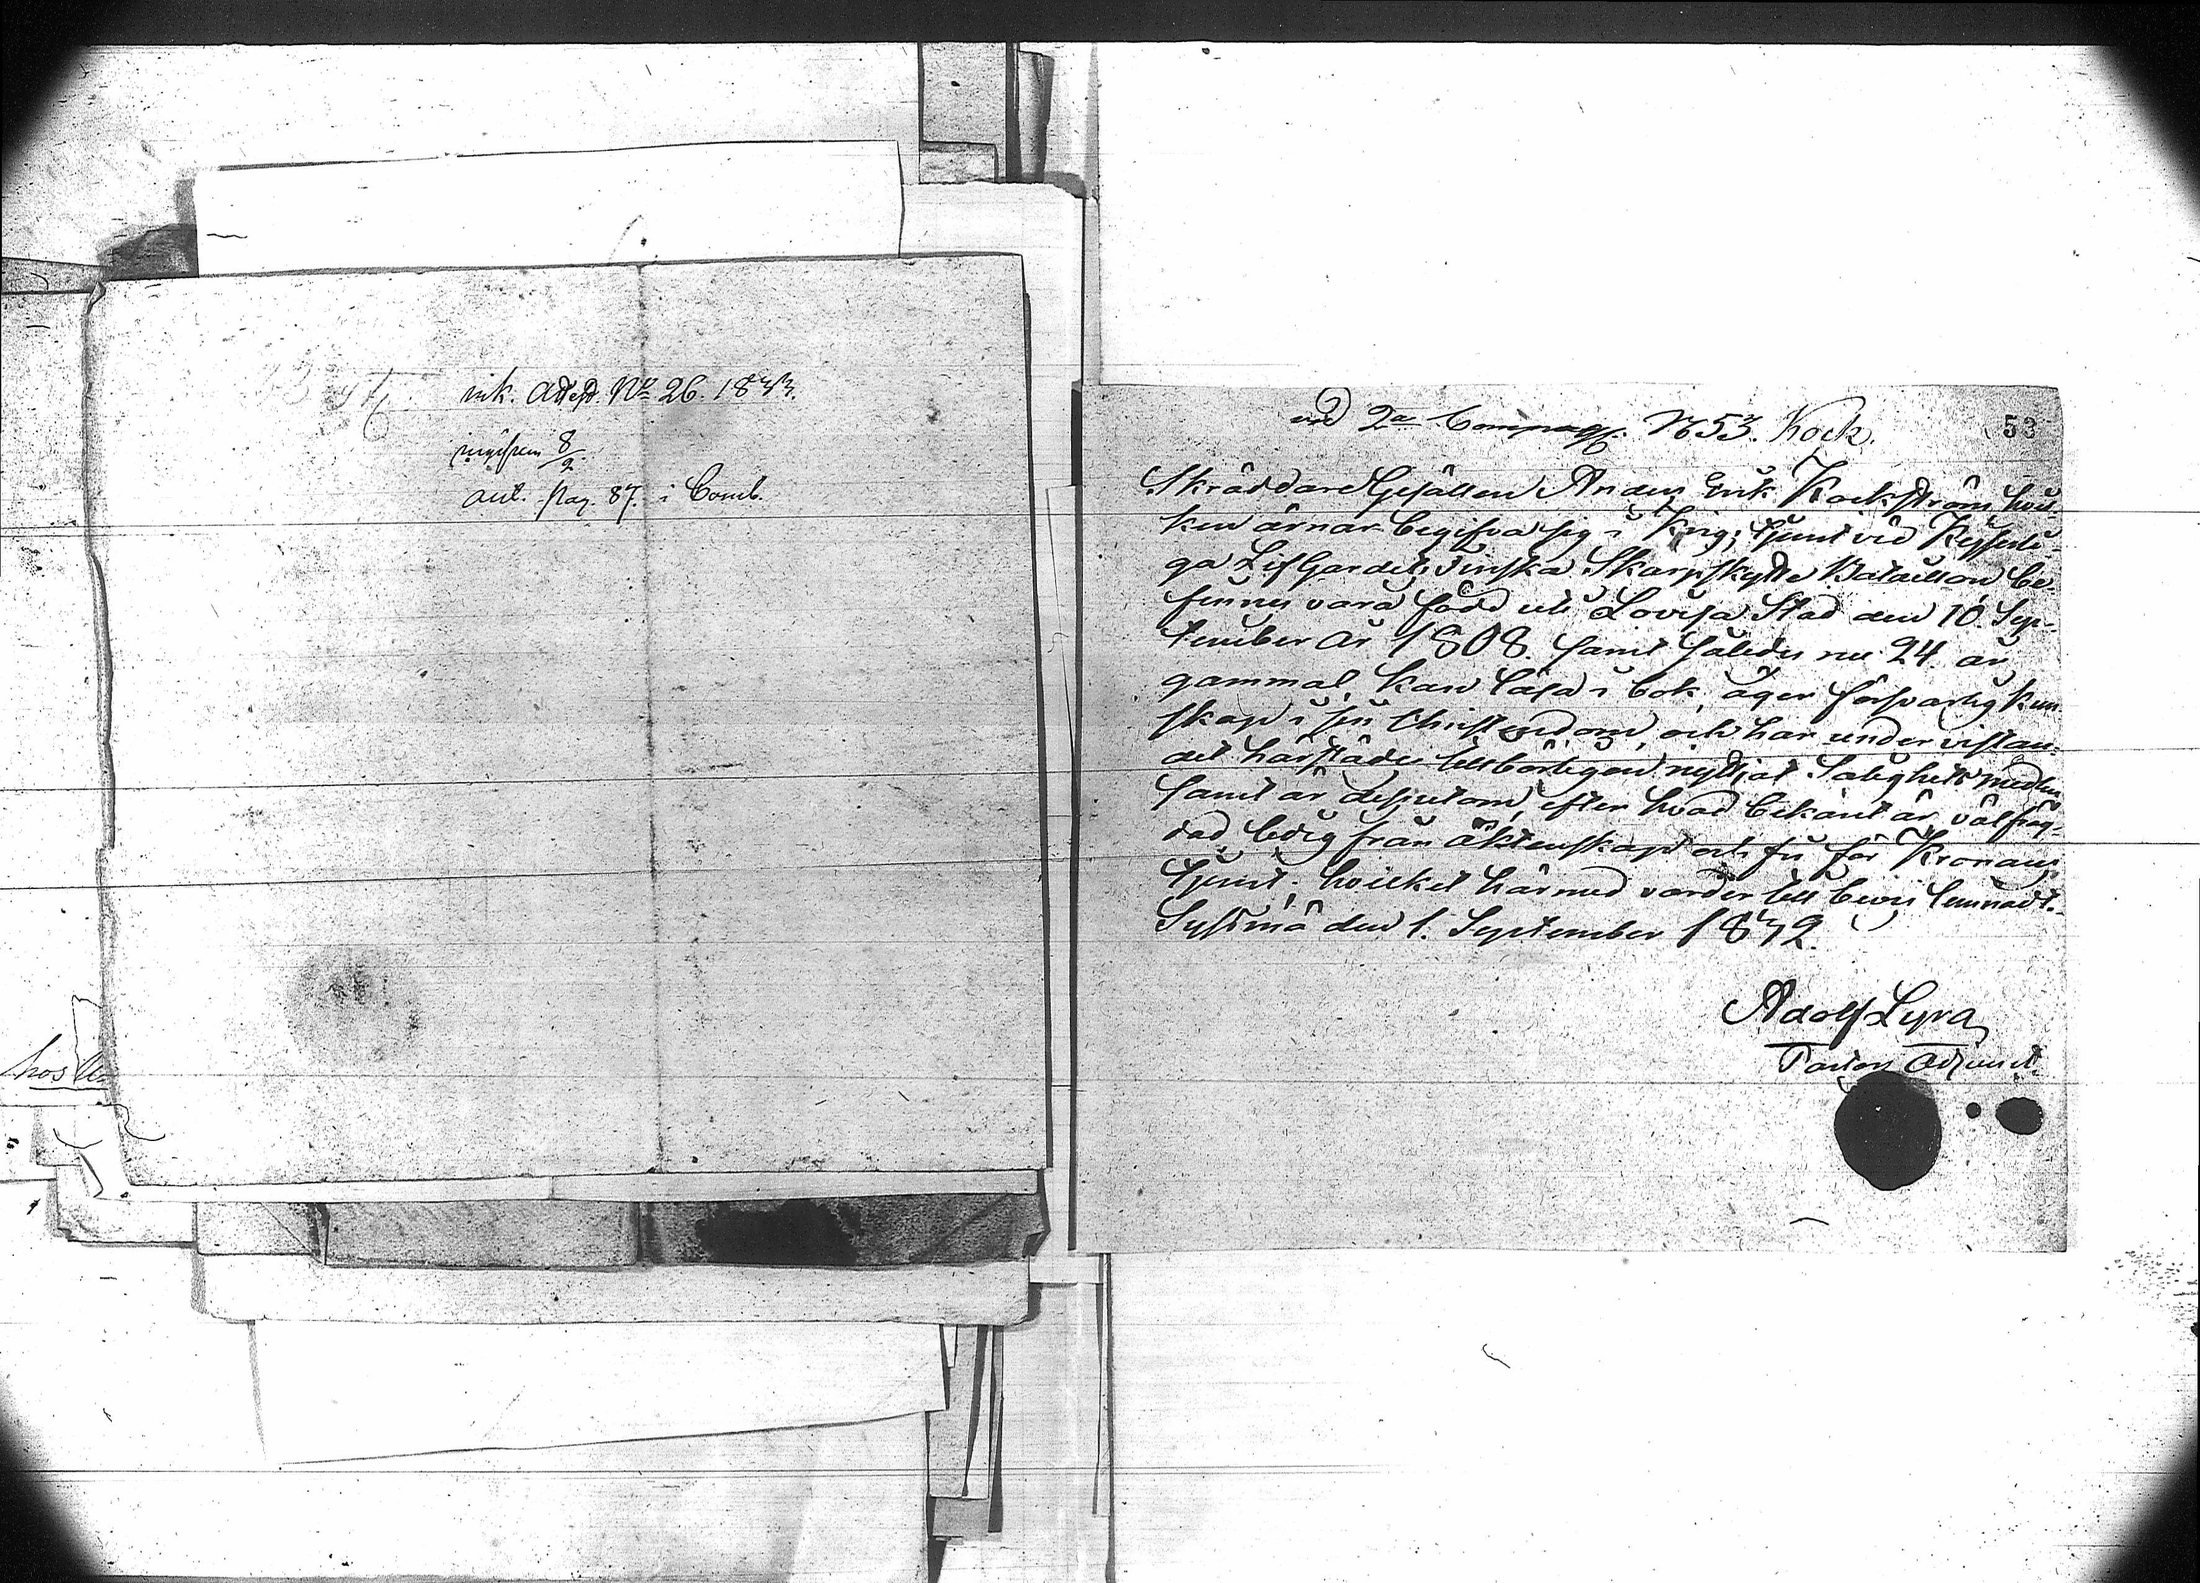 ink. Attest. No 26. 1833.
8/2.
ant. Pag. 87. i Comb.
hos
vid 2a Compagn. No 53. Kock.
53
Skräddare Gesällen Anders Erik Kockström, hvil-
ken ärnar begifva sig i Krigs tjenst vid Kejserli-
ga LifGardets Finska Skarpskytte Bataillon be-
finnes vara född uti Lovisa Stad den 10 Sep-
tember år 1808. samt således nu 24. år
gammal, kan läsa i bok, äger försvarlig kun-
skap i sin Christendom, och har under vistan-
det härstädes tillbörligen nyttjat Salighets medlen
samt är desjutom, efter hvad bekant är, välfräg-
dad, ledig från äktenskap och fri för Kronans
tjenst; hvilket härmed varder till bevis lemnadt.
Sysmä den 1. September 1832.
Adolf Lyra
Pastors Adjunct.